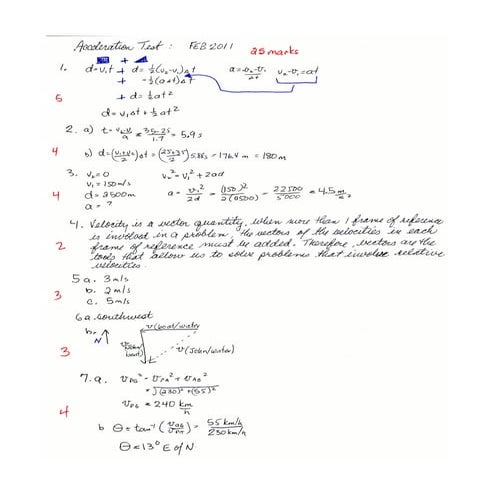 Acceleration Test : FEB 2011 25 marks
1. d = v₁t + d = ½(v₂-v₁)Δt a = v₂-v₁/Δt v₂-v₁ = at
+ ½(at)Δt
5 + d = ½at²
d = v₁Δt + ½at²
2. a) t = v₂-v₁/a = 35-25/1.7 = 5.9 s
4 b) d = (v₁+v₂/2)Δt = (25+35/2)5.88s = 176.4 m = 180m
3. v₂ = 0 v₂² = v₁² + 2ad
v₁ = 150 m/s
4 d = 2500m a = v₁²/2d = (150)²/2(2500) = 22500/5000 = 4.5 m/s²
a = ?
4. Velocity is a vector quantity, when more than 1 frame of reference
is involved in a problem, the vectors of the velocities in each
2 frame of reference must be added. Therefore, vectors are the
tools that allow us to solve problems that involve relative
velocities.
5 a. 3 m/s
3 b. 2 m/s
c. 5 m/s
6 a. southwest
b. N v(boat/water
v(John/boat)
3 v(John/water)
7. a. v² = v² + v²
= √(230)² + (55)²
v = 240 km/h
4 b θ = tan⁻¹ ( ) = 55 km/h / 230 km/h
θ = 13° E of N